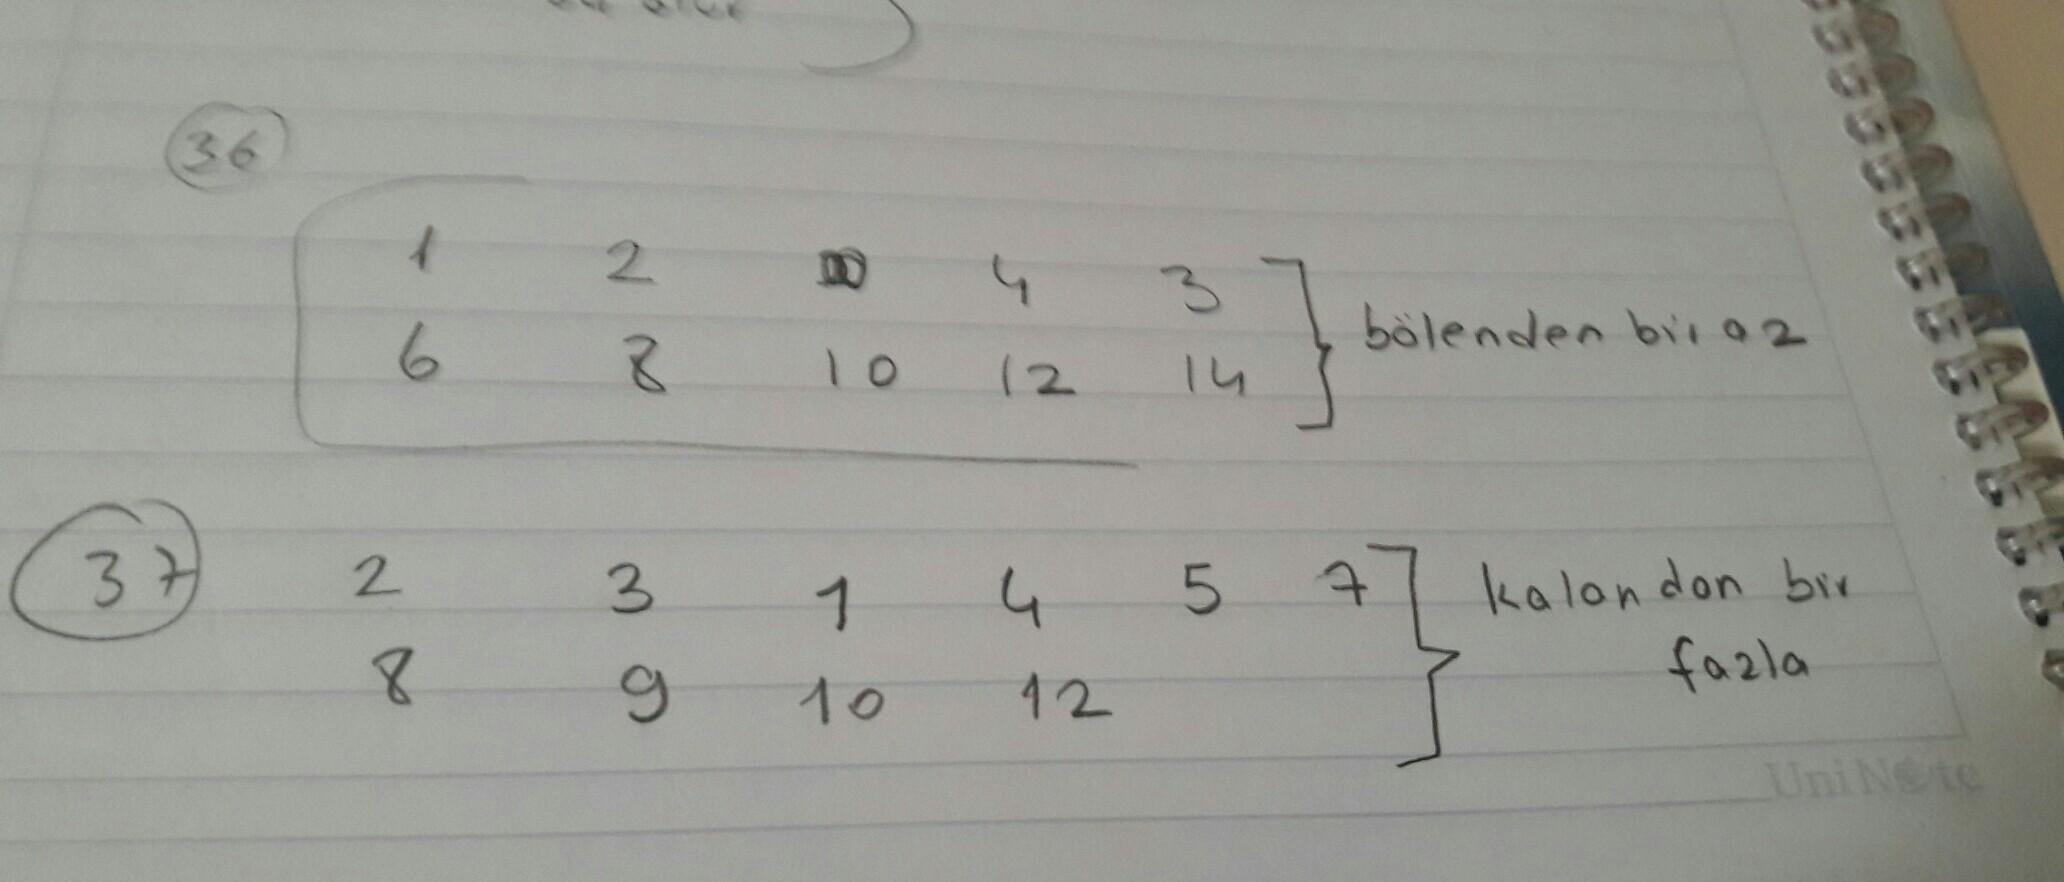 36
1 2 4 3
6 8 10 12 14
bölenden bir az
37
2 3 1 4 5 7
8 9 10 12
kalandan bir
fazla
UniNote